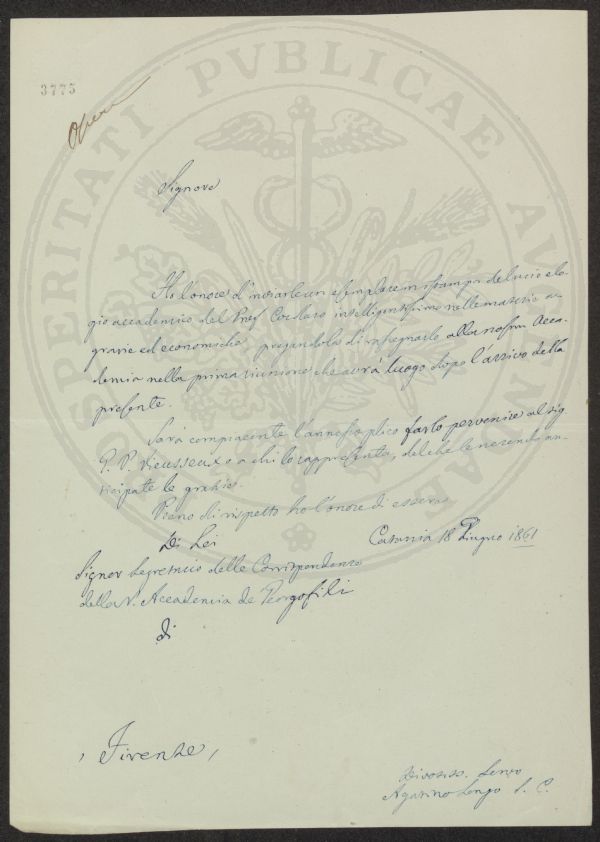 3775
Opere
PROSPERITATI PVBLICAE AVGENDAE
Signore
Ho l'onore d'inviarle un esemplare in istampa del mio elo-
gio accademico del Prof. Cordaro intelligentissimo nelle materie a-
grarie ed economiche pregandola di rassegnarlo alla nostra Acca-
demia nella prima riunione che avrà luogo dopo l'arrivo della
presente.
Sarà compiacente l'annesso plico farlo pervenire al sig.
P. V. Vieusseux o a chi lo rappresenta, del che le ne rendo an-
ticipate le grazie.
Pieno di rispetto ho l'onore di essere
Di Lei
Catania 18 Giugno 1861
Signor Segretario delle Corrispondenze
della R. Accademia de Georgofili
di
Firenze
Divotiss. Servo
Agatino Longo S. C.